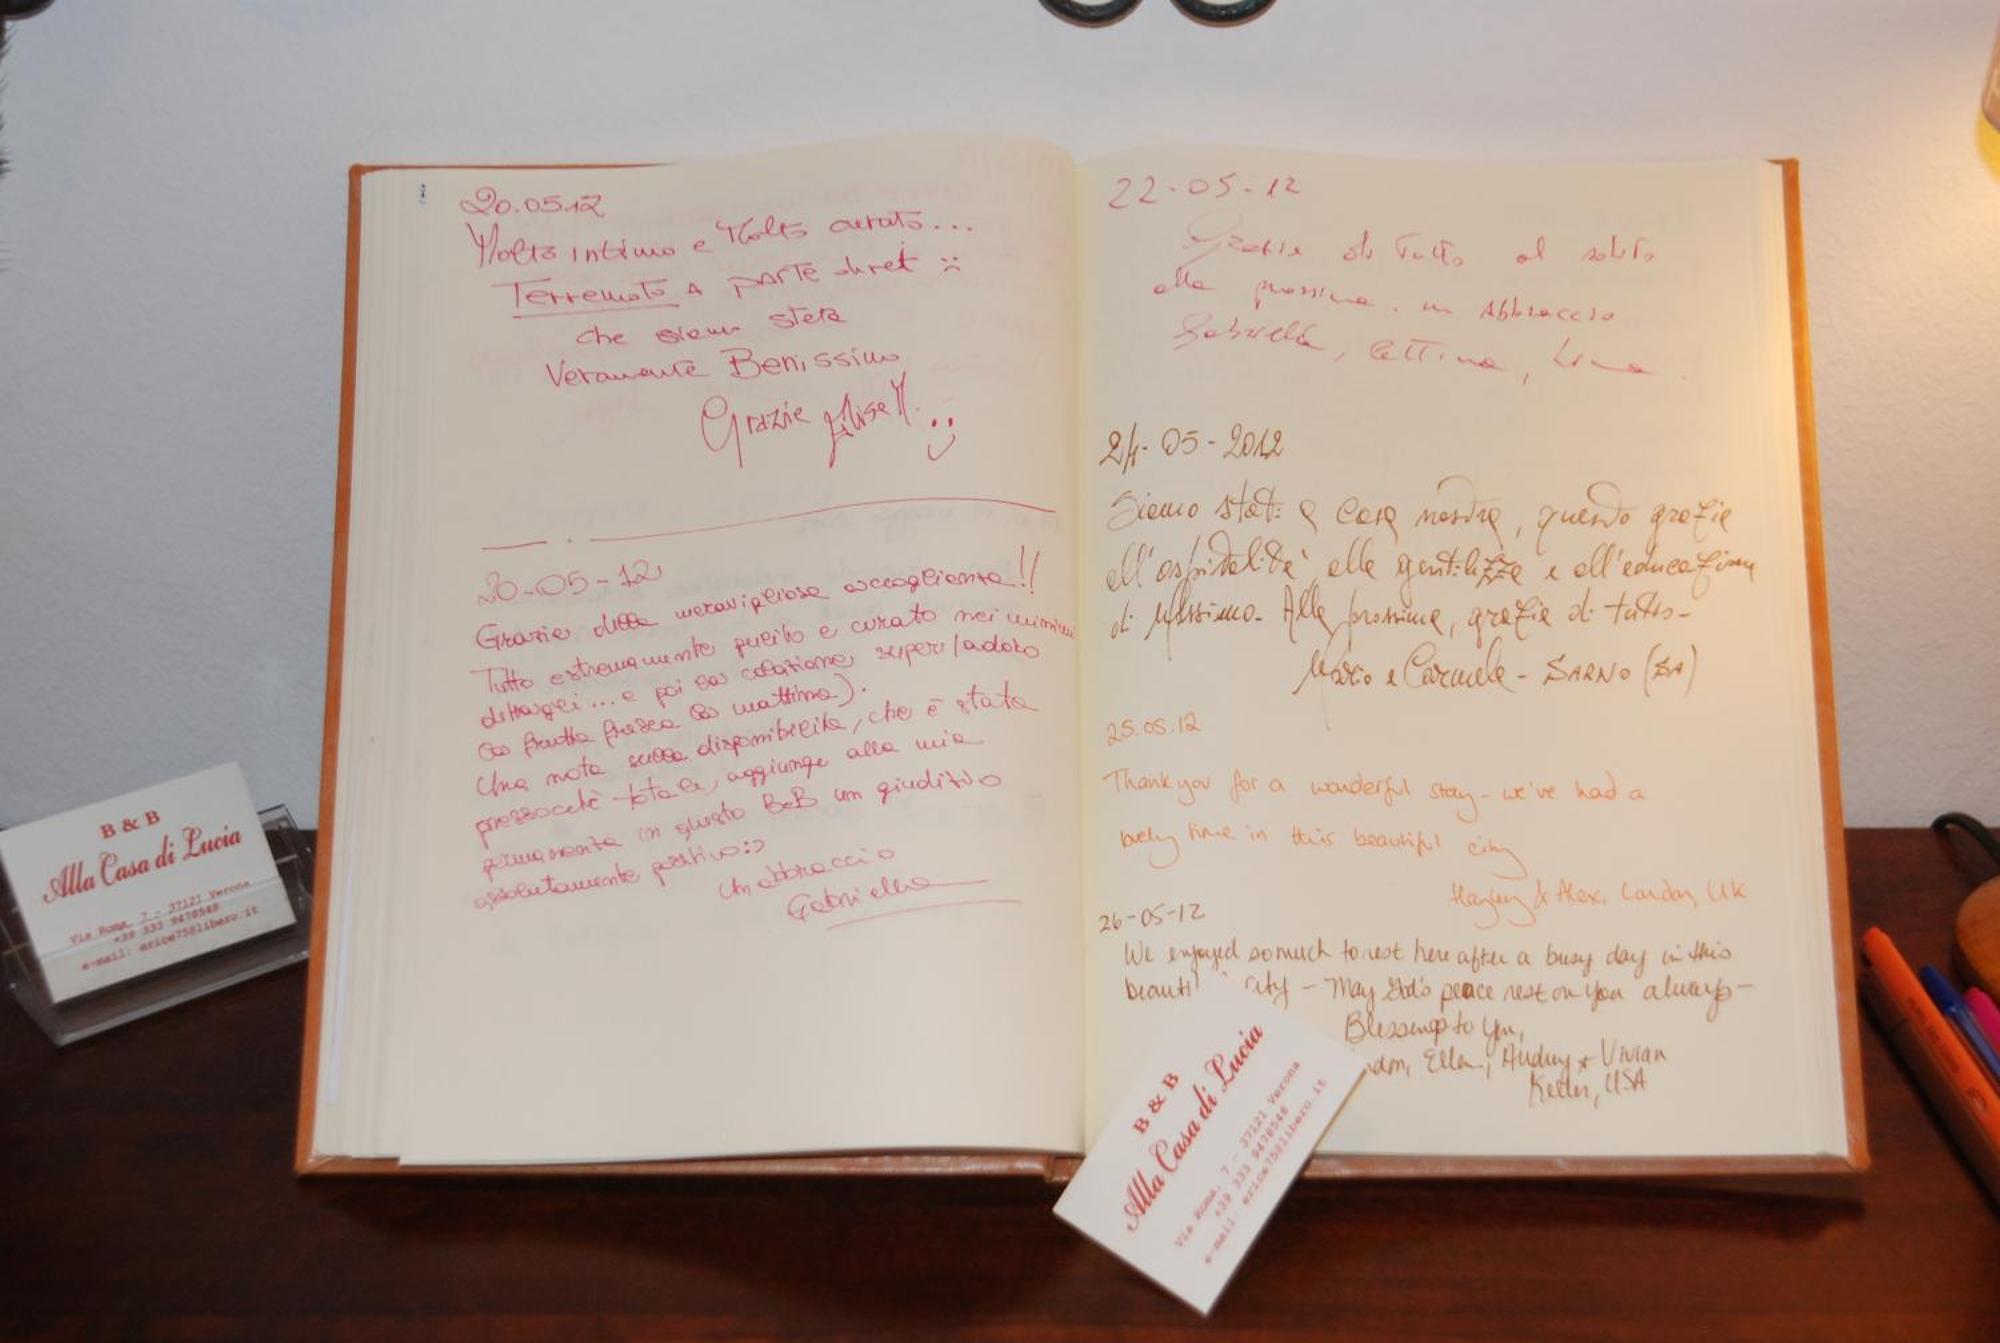 20.05.12
Molto intimo e Molto curato...
Terremoto A parte direi :(
che siamo state
Veramente Benissimo
Grazie
20-05-12
Grazie della meravigliosa accoglienza!!
Tutto estremamente pulito e curato nei minimi
dettagli... e poi la colazione, super (adoro
la frutta fresca la mattina).
Una nota sulla disponibilità, che è stata
pressochè totale, aggiunge alla mia
permanenza in questo B&B un giudizio
assolutamente positivo :)
Un abbraccio
Gabriella
22-05-12
Grazie di tutto al solito
alla prossima. un Abbraccio
Gabriella, Lettina, Lina.
24-05-2012
Siamo stati a casa nostra, quando grazie
all'ospitalità alla gentilezza e all'educazione
di Massimo. Alla prossima, grazie di tutto-
Mario e Carmela - SARNO (SA)
25.05.12
Thank you for a wonderful stay - we've had a
lovely time in this beautiful city
& Alex, London, UK
26-05-12
We enjoyed so much to rest here after a busy day in this
beauti city - May God's peace rest on you always-
Blessings to you,
don, Ellen, Audrey & Vivian
Keller, USA
B & B
Alla Casa di Lucia
Via Roma, 7 - 37121 Verona
+39 333 9478548
e-mail: erice75@libero.it
B & B
Alla Casa di Lucia
Via Roma, 7 - 37121 Verona
+39 333 9478548
e-mail: erice75@libero.it